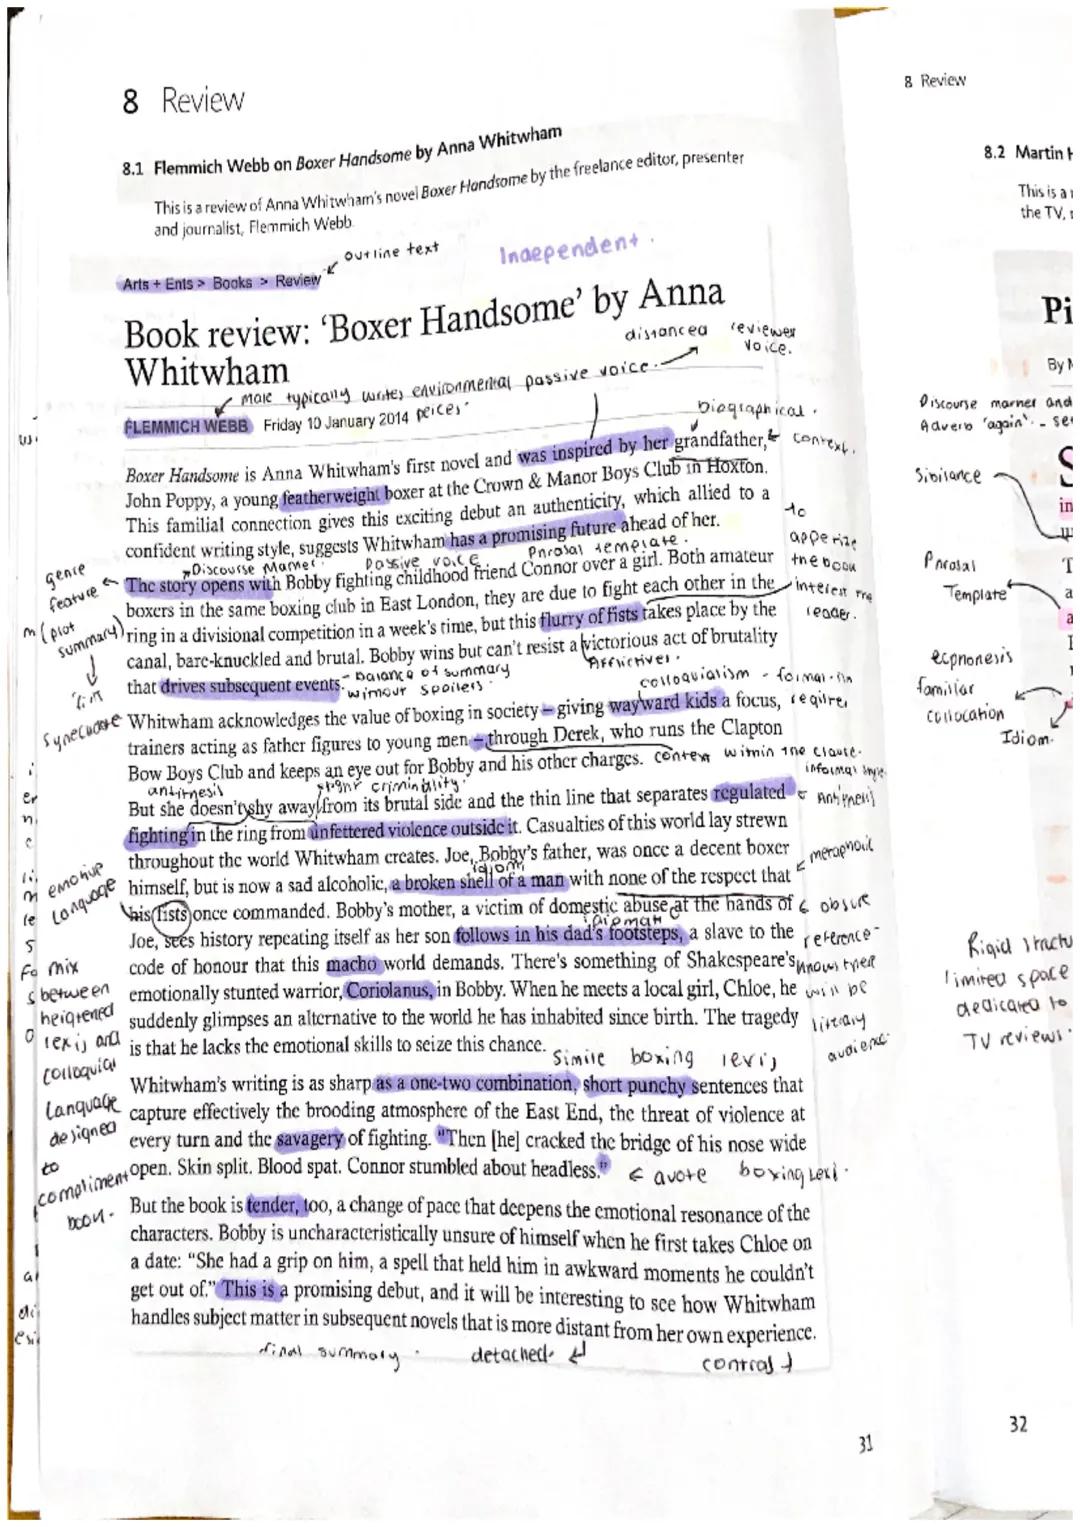 8 Review
8.1 Flemmich Webb on Boxer Handsome by Anna Whitwham
This is a review of Anna Whitwham's novel Boxer Handsome by the freelance editor, presenter
and journalist, Flemmich Webb.
outline text
Independent.
Arts + Ents > Books > Review
Book review: 'Boxer Handsome' by Anna
Whitwham
distanced reviewer
voice.
male typically writes environmental passive voice.
peices
FLEMMICH WEBB Friday 10 January 2014
biographical.
context.
Boxer Handsome is Anna Whitwham's first novel and was inspired by her grandfather,
John Poppy, a young featherweight boxer at the Crown & Manor Boys Club in Hoxton.
This familial connection gives this exciting debut an authenticity, which allied to a
confident writing style, suggests Whitwham has a promising future ahead of her.
Discourse Marner. passive voice Phrasal template.
to
apperize
the book
interest the
reader.
genre
feature
(plot
summary)
The story opens with Bobby fighting childhood friend Connor over a girl. Both amateur
boxers in the same boxing club in East London, they are due to fight each other in the
ring in a divisional competition in a week's time, but this flurry of fists takes place by the
canal, bare-knuckled and brutal. Bobby wins but can't resist a victorious act of brutality
that drives subsequent events.
- balance of summary
without spoilers.
Affrictives.
colloquialism -
Whitwham acknowledges the value of boxing in society – giving wayward kids a focus,
trainers acting as father figures to young men – through Derek, who runs the Clapton
Bow Boys Club and keeps an eye out for Bobby and his other charges.
context within the clause.
informal style
antithesis
criminality.
But she doesn't shy away from its brutal side and the thin line that separates regulated
Antithesis
fighting in the ring from unfettered violence outside it. Casualties of this world lay strewn
throughout the world Whitwham creates. Joe, Bobby's father, was once a decent boxer
idiom
emotive
Language
himself, but is now a sad alcoholic, a broken shell of a man with none of the respect that
his fists once commanded. Bobby's mother, a victim of domestic abuse at the hands of
obsure
reference-
Joe, sees history repeating itself as her son follows in his dad's footsteps, a slave to the
code of honour that this macho world demands. There's something of Shakespeare's
emotionally stunted warrior, Coriolanus, in Bobby. When he meets a local girl, Chloe, he
suddenly glimpses an alternative to the world he has inhabited since birth. The tragedy
is that he lacks the emotional skills to seize this chance.
will be
literary
audience.
mix
between
heigtened
lexis and
colloquial
Language
designed
to
compliment
book.
Simile boxing lexis
Whitwham's writing is as sharp as a one-two combination, short punchy sentences that
capture effectively the brooding atmosphere of the East End, the threat of violence at
every turn and the savagery of fighting. "Then [he] cracked the bridge of his nose wide
open. Skin split. Blood spat. Connor stumbled about headless."
quote boxing lexi.
But the book is tender, too, a change of pace that deepens the emotional resonance of the
characters. Bobby is uncharacteristically unsure of himself when he first takes Chloe on
a date: "She had a grip on him, a spell that held him in awkward moments he couldn't
get out of." This is a promising debut, and it will be interesting to see how Whitwham
handles subject matter in subsequent novels that is more distant from her own experience.
final summary.
detached.
contrast
31
8 Review
8.2 Martin
This is a
the TV,
Pi
By
Discourse marner and
Adverb 'again'.
Sibilance
Phrasal
Template
ecpnonesis
familiar
collocation
Idiom.
Rigid
limited space
dedicated to
TV reviews.
32